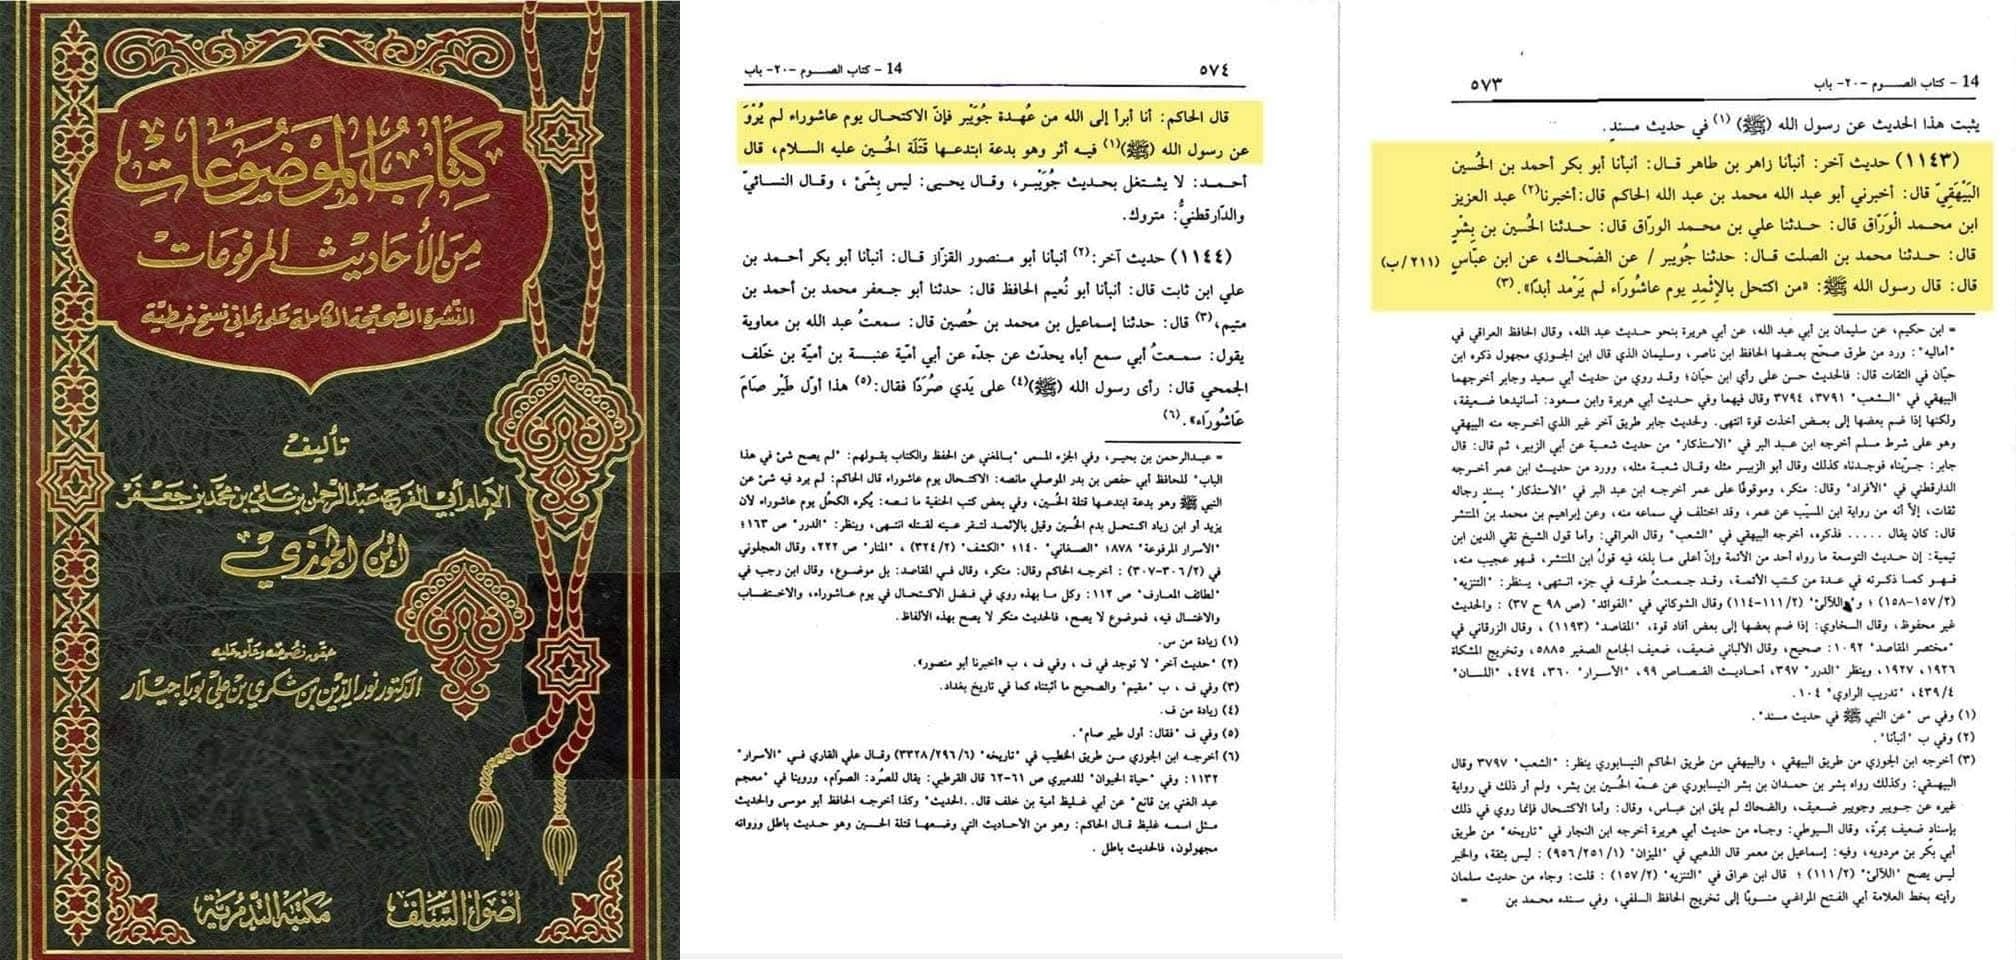 كتاب الموضوعات
من الأحاديث المرفوعات
النشرة الصحيحة الكاملة على ثماني نسخ خطية
تأليف
الإمام أبي الفرج عبد الرحمن بن علي بن محمد بن جعفر
ابن الجوزي
حقق نصوصه وعلق عليه
الدكتور نور الدين بن شكري بن علي بويا جيلار
أضواء السلف
مكتبة التدمرية
14 - كتاب الصوم -٢٠- باب
٥٧٣
يثبت هذا الحديث عن رسول الله (ﷺ) (١) في حديث مسندٍ.
(١١٤٣) حديث آخر: أنبأنا زاهر بن طاهر قال: أنبأنا أبو بكر أحمد بن الحُسين
البَيْهَقِيّ قال: أخبرني أبو عبد الله محمد بن عبد الله الحاكم قال: أخبرنا(٢) عبد العزيز
ابن محمد الْوَرّاق قال: حدثنا علي بن محمد الورّاق قال: حدثنا الحُسين بن بِشْرٍ
قال: حدثنا محمد بن الصلت قال: حدثنا جُويبر / عن الضّحاك، عن ابن عبّاس (٢١١/ب)
قال: قال رسول الله ﷺ: «من اكتحل بالإثْمِدِ يوم عاشُورَاء لم يَرْمد أبدًا».(٣)
= ابن حكيم، عن سليمان بن أبي عبد الله، عن أبي هريرة بنحو حديث عبد الله، وقال الحافظ العراقي في
"أماليه": ورد من طرق صحّح بعضها الحافظ ابن ناصر، وسليمان الذي قال ابن الجوزي مجهول ذكره ابن
حبّان في الثقات قال: فالحديث حسن على رأي ابن حبّان؛ وقد روي من حديث أبي سعيد وجابر أخرجهما
البيهقي في "الشعب" ٣٧٩١، ٣٧٩٤ وقال فيهما وفي حديث أبي هريرة وابن مسعود: أسانيدها ضعيفة،
ولكنها إذا ضم بعضها إلى بعض أخذت قوة انتهى. ولحديث جابر طريق آخر غير الذي أخرجه منه البيهقي
وهو على شرط مسلم أخرجه ابن عبد البر في "الاستذكار" من حديث شعبة عن أبي الزبير، ثم قال: قال
جابر: جرّبناه فوجدناه كذلك وقال أبو الزبير مثله وقال شعبة مثله، وورد من حديث ابن عمر أخرجه
الدارقطني في "الأفراد" وقال: منكر، وموقوفًا على عمر أخرجه ابن عبد البر في "الاستذكار" بسندٍ رجاله
ثقات، إلاّ أنه من رواية ابن المسيّب عن عمر، وقد اختلف في سماعه منه، وعن إبراهيم بن محمد بن المنتشر
قال: كان يقال ..... فذكره، أخرجه البيهقي في "الشعب" وقال العراقي: وأما قول الشيخ تقي الدين ابن
تيمية: إن حديث التوسعة ما رواه أحد من الأئمة وإنّ أعلى ما بلغه فيه قولُ ابن المنتشر، فهو عجيب منه،
فهو كما ذكرته في عدة من كتب الأئمة، وقد جمعتُ طرقه في جزء انتهى، ينظر: "التنزيه"
(٢/ ١٥٧-١٥٨) ؛ و"اللآلئ" (٢/ ١١١-١١٤) وقال الشوكاني في "الفوائد" (ص ٩٨ ح ٣٧) : والحديث
غير محفوظ، وقال السخاوي: إذا ضم بعضها إلى بعض أفاد قوة، "المقاصد" (١١٩٣) ، وقال الزرقاني في
"مختصر المقاصد" ١٠٩٢: صحيح، وقال الألباني ضعيف، ضعيف الجامع الصغير ٥٨٨٥، وتخريج المشكاة
١٩٢٦، ١٩٢٧، وينظر "الدرر" ٣٩٧، أحاديث القصاص ٩٩، "الأسرار" ٣٦٠، ٤٧٤، "اللسان"
٤٣٩/٤، "تدريب الراوي" ١٠٤.
(١) وفي س "عن النبي ﷺ في حديث مسند".
(٢) وفي ب "أنبأنا".
(٣) أخرجه ابن الجوزي من طريق البيهقي ، والبيهقي من طريق الحاكم النيسابوري ينظر: "الشعب" ٣٧٩٧ وقال
البيهقي: وكذلك رواه بشر بن حمدان بن بشر النيسابوري عن عمّه الحُسين بن بشر، ولم أر ذلك في رواية
غيره عن جويبر وجويبر ضعيف، والضحاك لم يلق ابن عباس، وقال: وأما الاكتحال فإنما روي في ذلك
بإسنادٍ ضعيف بمرّة، وقال السيوطي: وجاء من حديث أبي هريرة أخرجه ابن النجار في "تاريخه" من طريق
أبي بكر بن مردويه، وفيه: إسماعيل بن معمر قال الذهبي في "الميزان" (٩٥٦/٢٥١/١) : ليس بثقة، والخبر
ليس يصح "اللآلئ" (١١١/٢) ؛ قال ابن عراق في "التنزيه" (١٥٧/٢) : قلت: وجاء من حديث سلمان
رأيته بخط العلامة أبي الفتح المراغي منسوبًا إلى تخريج الحافظ السلفي، وفي سنده محمد بن =
٥٧٤
14 - كتاب الصوم -٢٠- باب
قال الحاكم: أنا أبرأ إلى الله من عُهدة جُوَيْبر فإنّ الاكتحال يوم عاشوراء لم يُرْوَ
عن رسول الله (ﷺ)(١) فيه أثر وهو بدعة ابتدعها قَتَلَة الحُسين عليه السلام، قال
أحمد: لا يشتغل بحديث جُوَيْبر، وقال يحيى: ليس بِشَئ ، وقال النسائيّ
والدّارقطنيُّ: متروك.
(١١٤٤) حديث آخر:(٢) أنبأنا أبو منصور القزّاز قال: أنبأنا أبو بكر أحمد بن
علي ابن ثابت قال: أنبأنا أبو نُعيم الحافظ قال: حدثنا أبو جعفر محمد بن أحمد بن
متيم،(٣) قال: حدثنا إسماعيل بن محمد بن حُصين قال: سمعتُ عبد الله بن معاوية
يقول: سمعتُ أبي سمع أباه يحدّث عن جدّه عن أبي أميّة عنبسة بن أميّة بن خَلف
الجمحي قال: رأى رسول الله (ﷺ)(٤) على يَدي صُرَدًا فقال:(٥) هذا أوّل طَيْر صَامَ
عَاشُورَاء».(٦)
= عبدالرحمن بن بحير، وفي الجزء المسمى "بالمغني عن الحفظ والكتاب بقولهم: "لم يصح شئ في هذا
الباب" للحافظ أبي حفص بن بدر الموصلي مانصه: الاكتحال يوم عاشوراء قال الحاكم: لم يرد فيه شئ عن
النبي ﷺ وهو بدعة ابتدعها قتلة الحُسين، وفي بعض كتب الحنفية ما نصه: يكره الكحُل يوم عاشوراء لان
يزيد أو ابن زياد اكتحل بدم الحُسين وقيل بالإثمد لتقر عينه لقتله انتهى، وينظر: "الدرر" ص ١٦٣؛
"الأسرار المرفوعة" ٨٧٨؛ "الصغاني" ١٤٠؛ "الكشف" (٣٢٤/٢) ، "المنار" ص ٢٢٢، وقال العجلوني
في (٣٠٦/٢-٣٠٧) : أخرجه الحاكم وقال: منكر، وقال في المقاصد: بل موضوع، وقال ابن رجب في
"لطائف المعارف" ص ١١٢: وكل ما بهذه روي في فضل الاكتحال في يوم عاشوراء، والاختضاب
والاغتسال فيه، فموضوع لا يصح، فالحديث منكر لا يصح بهذه الألفاظ.
(١) زيادة من س.
(٢) "حديث آخر" لا توجد في ف ، وفي ف ، ب «أخبرنا أبو منصور».
(٣) وفي ف ، ب "مقيم" والصحيح ما أثبتناه كما في تاريخ بغداد.
(٤) زيادة من ف.
(٥) وفي ف "فقال: أول طير صام".
(٦) أخرجه ابن الجوزي من طريق الخطيب في "تاريخه" (٣٣٢٨/٢٩٦/٦) وقال علي القاري في "الأسرار"
١١٣٢: وفي "حياة الحيوان" للدميري ص ٦١-٦٢ قال القرطبي: يقال للصُرد: الصوّام، وروينا في "معجم
عبد الغني بن قانع" عن أبي غليظ أمية بن خلف قال.. الحديث" وكذا أخرجه الحافظ أبو موسى والحديث
مثل اسمه غليظ قال الحاكم: وهو من الأحاديث التي وضعها قتلة الحسين وهو حديث باطل ورواته
مجهولون، فالحديث باطل .